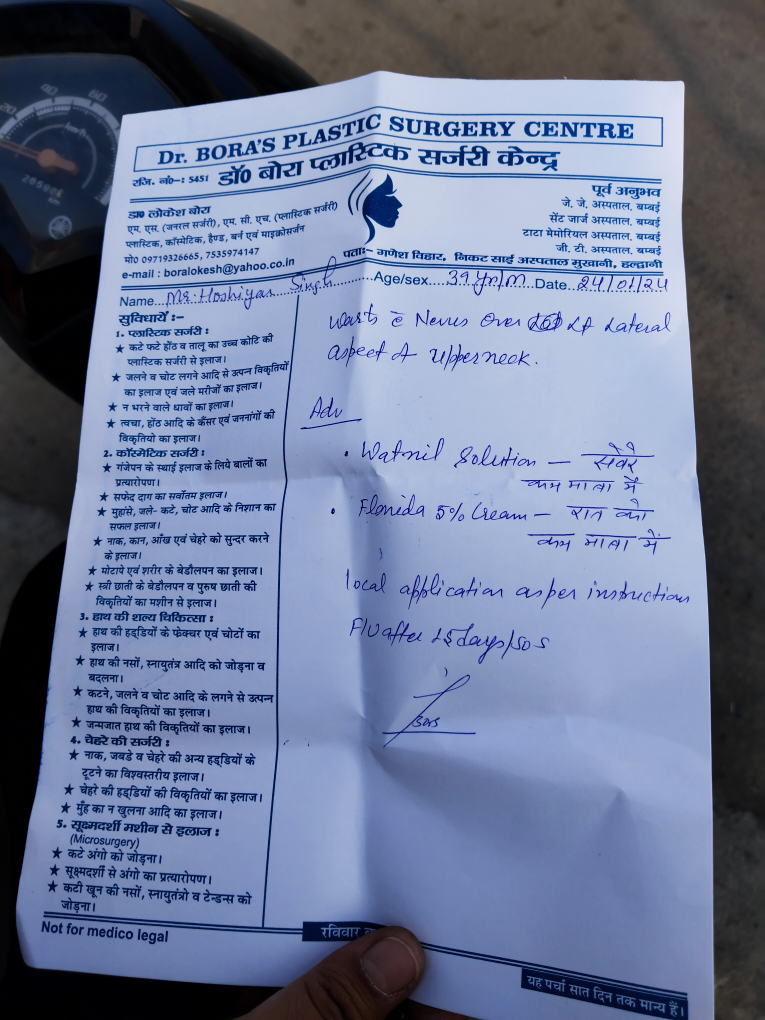 Dr. BORA'S PLASTIC SURGERY CENTRE
रजि. नं०-: 5451 डॉ0 बोरा प्लास्टिक सर्जरी केन्द्र
डा0 लोकेश बोरा
एम. एस. (जनरल सर्जरी), एम. सी. एच. (प्लास्टिक सर्जरी)
प्लास्टिक, कॉस्मेटिक, हैण्ड, बर्न एवं माइक्रोसर्जन
मो0 09719326665, 7535974147
e-mail : boralokesh@yahoo.co.in
पूर्व अनुभव
जे. जे. अस्पताल, बम्बई
सेंट जार्ज अस्पताल, बम्बई
टाटा मेमोरियल अस्पताल, बम्बई
जी. टी. अस्पताल, बम्बई
पताः- गणेश विहार, निकट साई अस्पताल मुखानी, हल्द्वानी
Name... Mr. Hoshiyar Singh ...Age/sex... 39 yr/m ...Date 24/01/24
सुविधायें :-
1. प्लास्टिक सर्जरी :
★ कटे फटे होंठ व तालू का उच्च कोटि की
प्लास्टिक सर्जरी से इलाज।
★ जलने व चोट लगने आदि से उत्पन विकृतियों
का इलाज एवं जले मरीजों का इलाज।
★ न भरने वाले धावों का इलाज।
★ त्वचा, होंठ आदि के कैंसर एवं जननांगों की
विकृतियो का इलाज।
2. कॉस्मेटिक सर्जरी :
★ गंजेपन के स्थाई इलाज के लिये बालों का
प्रत्यारोपण।
★ सफेद दाग का सर्वोतम इलाज।
★ मुहांसे, जले- कटे, चोट आदि के निशान का
सफल इलाज।
★ नाक, कान, आँख एवं चेहरे को सुन्दर करने
के इलाज।
★ मोटापे एवं शरीर के बेडौलपन का इलाज।
★ स्त्री छाती के बेडौलपन व पुरुष छाती की
विकृतियों का मशीन से इलाज।
3. हाथ की शल्य चिकित्सा :
★ हाथ की हड्डियों के फेक्चर एवं चोटों का
इलाज।
★ हाथ की नसों, स्नायुतंत्र आदि को जोड़ना व
बदलना।
★ कटने, जलने व चोट आदि के लगने से उत्पन्न
हाथ की विकृतियों का इलाज।
★ जन्मजात हाथ की विकृतियों का इलाज।
4. चेहरे की सर्जरी :
★ नाक, जबडे व चेहरे की अन्य हड्डियों के
टूटने का विश्वस्तरीय इलाज।
★ चेहरे की हड्डियों की विकृतियों का इलाज।
★ मुँह का न खुलना आदि का इलाज।
5. सूक्ष्मदर्शी मशीन से इलाज :
(Microsurgery)
★ कटे अंगो को जोड़ना।
★ सूक्ष्मदर्शी से अंगो का प्रत्यारोपण।
★ कटी खून की नसों, स्नायुतंत्रो व टेन्डन्स को
जोड़ना।
Warts c̄ Nevus over Lt Lateral
aspect of upper neck.
Adv
• Watnil Solution — सवेरे
कम मात्रा में
• Florida 5% Cream — रात को
कम मात्रा में
local application as per instructions
F/U after 15 days/SOS
Not for medico legal
रविवार
यह पर्चा सात दिन तक मान्य हैं।